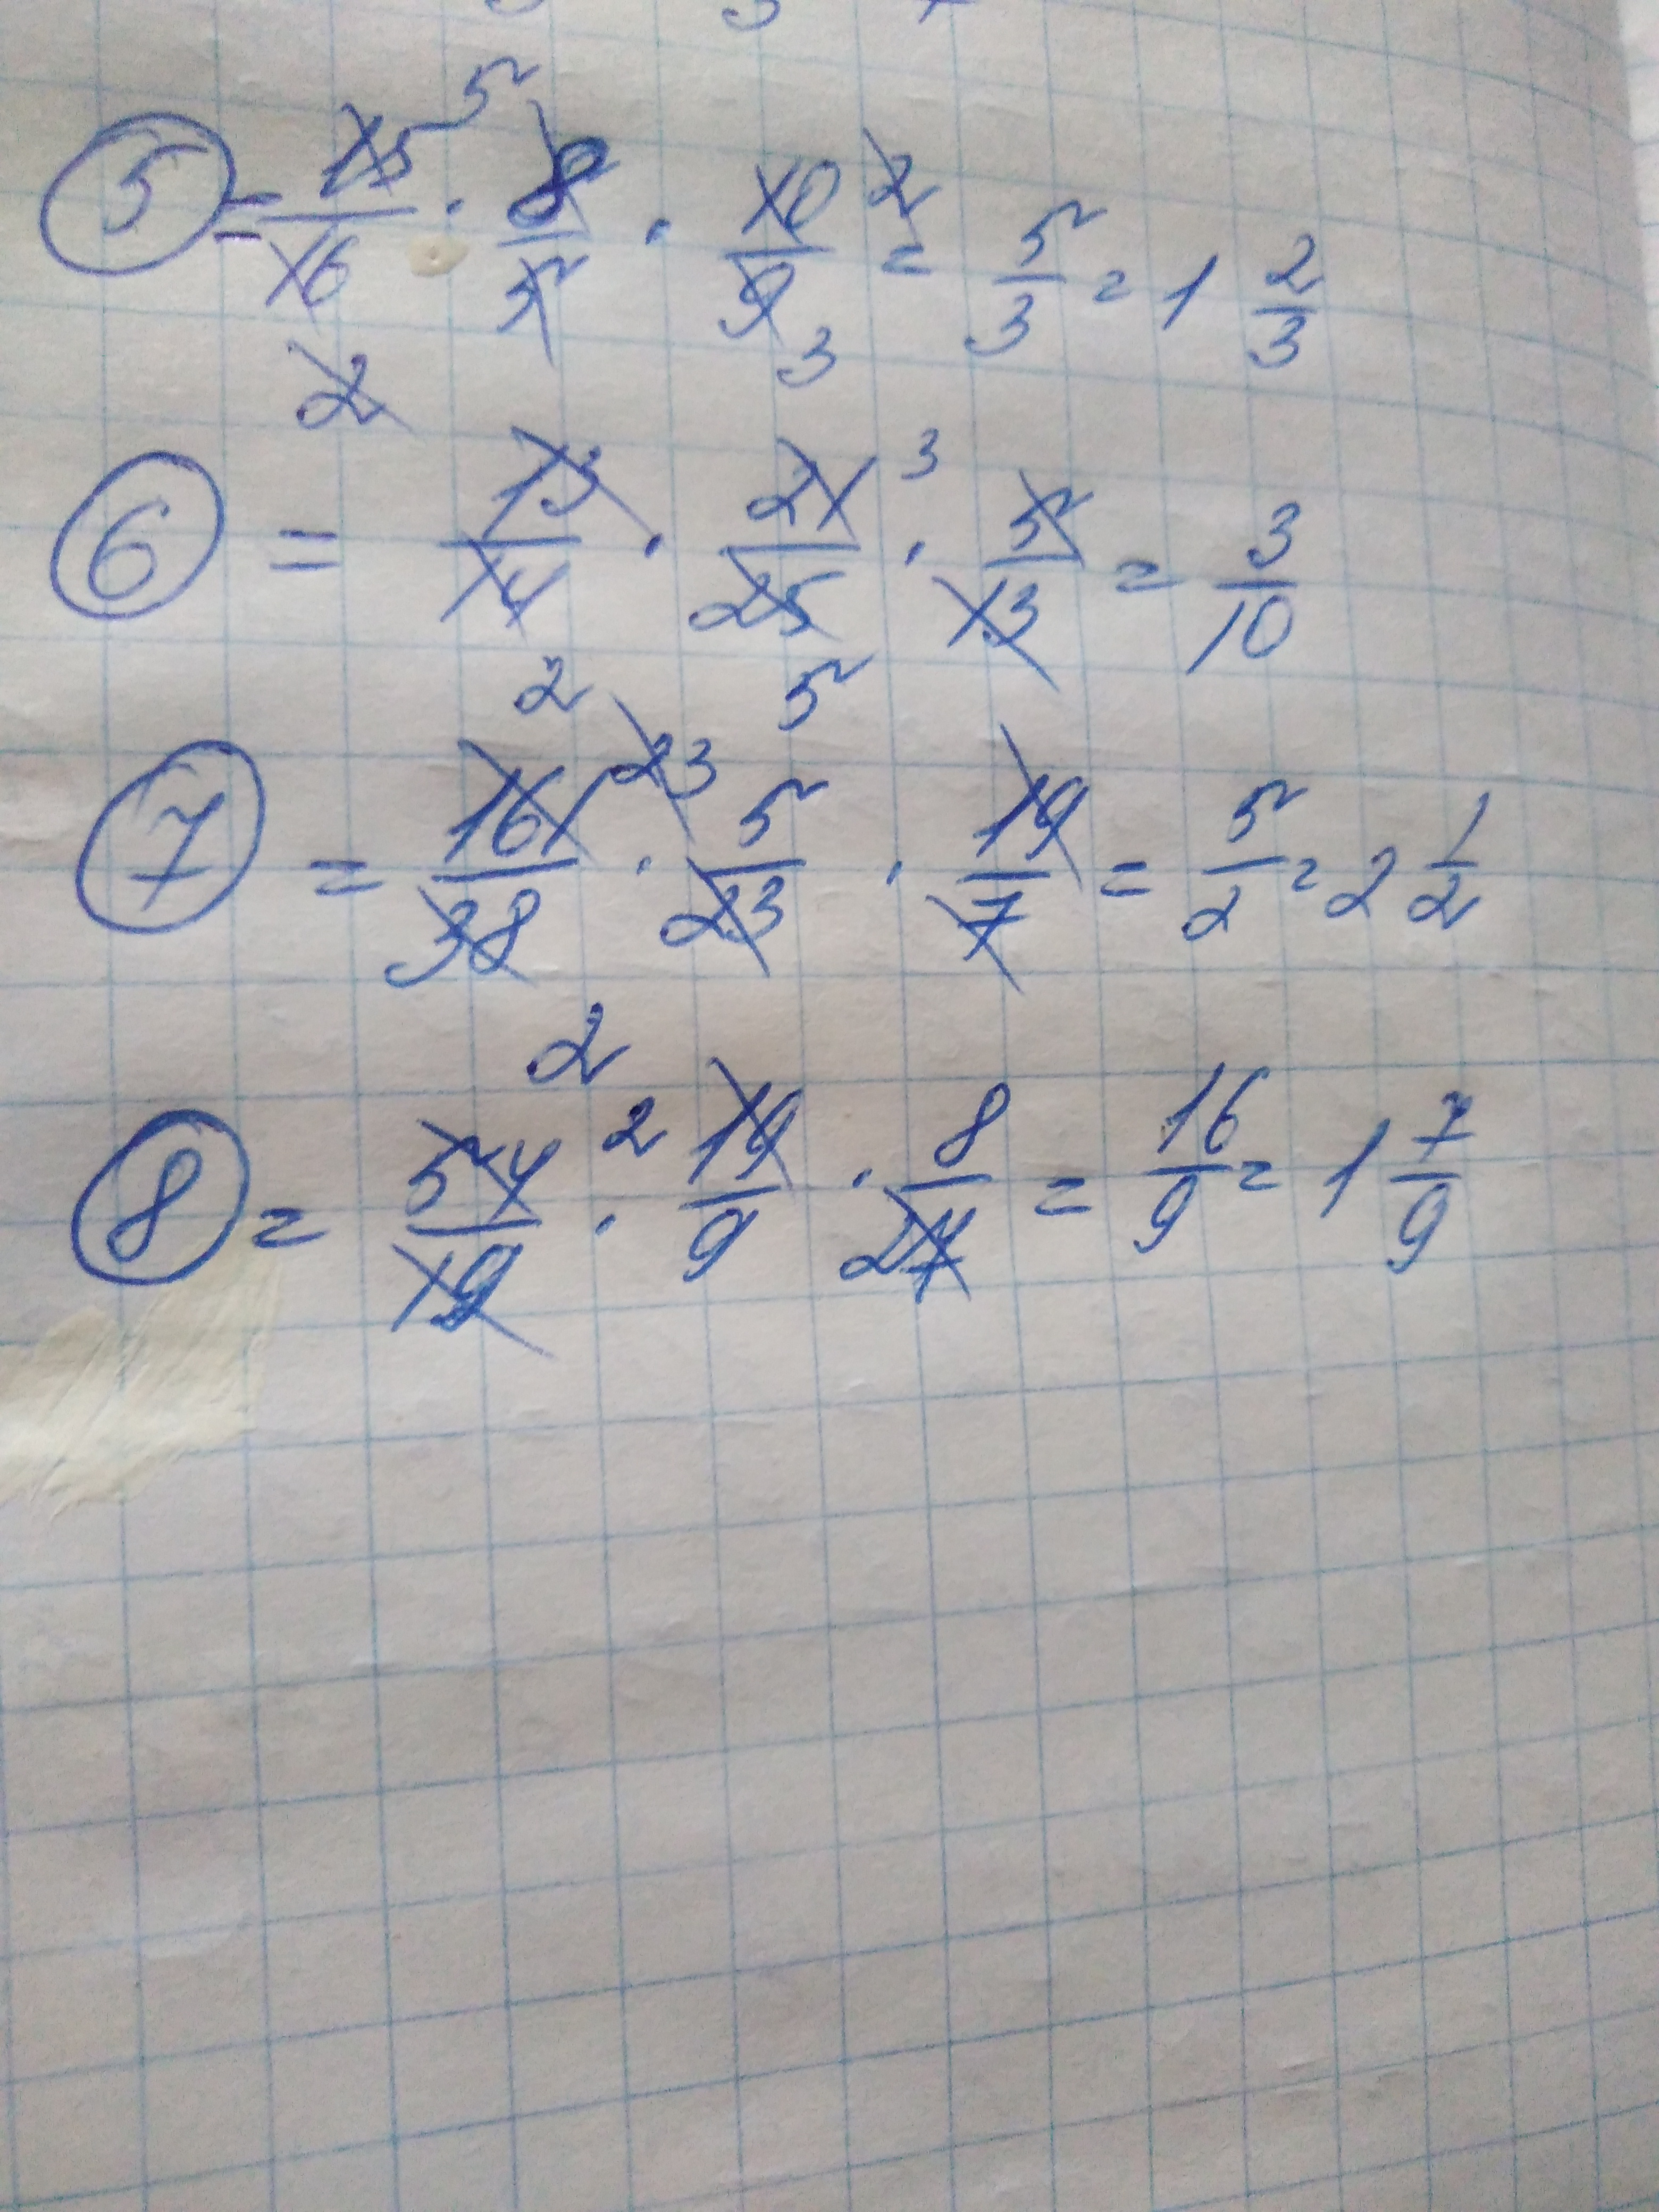 5 = 15/16 5 2 · 8/5 · 10/9 2 3 = 5/3 = 1 2/3
6 = 13/14 2 · 21/25 3 5 · 5/13 = 3/10
7 = 161/38 23 2 · 5/23 · 19/7 = 5/2 = 2 1/2
8 = 54/19 2 · 19/9 · 8/27 = 16/9 = 1 7/9